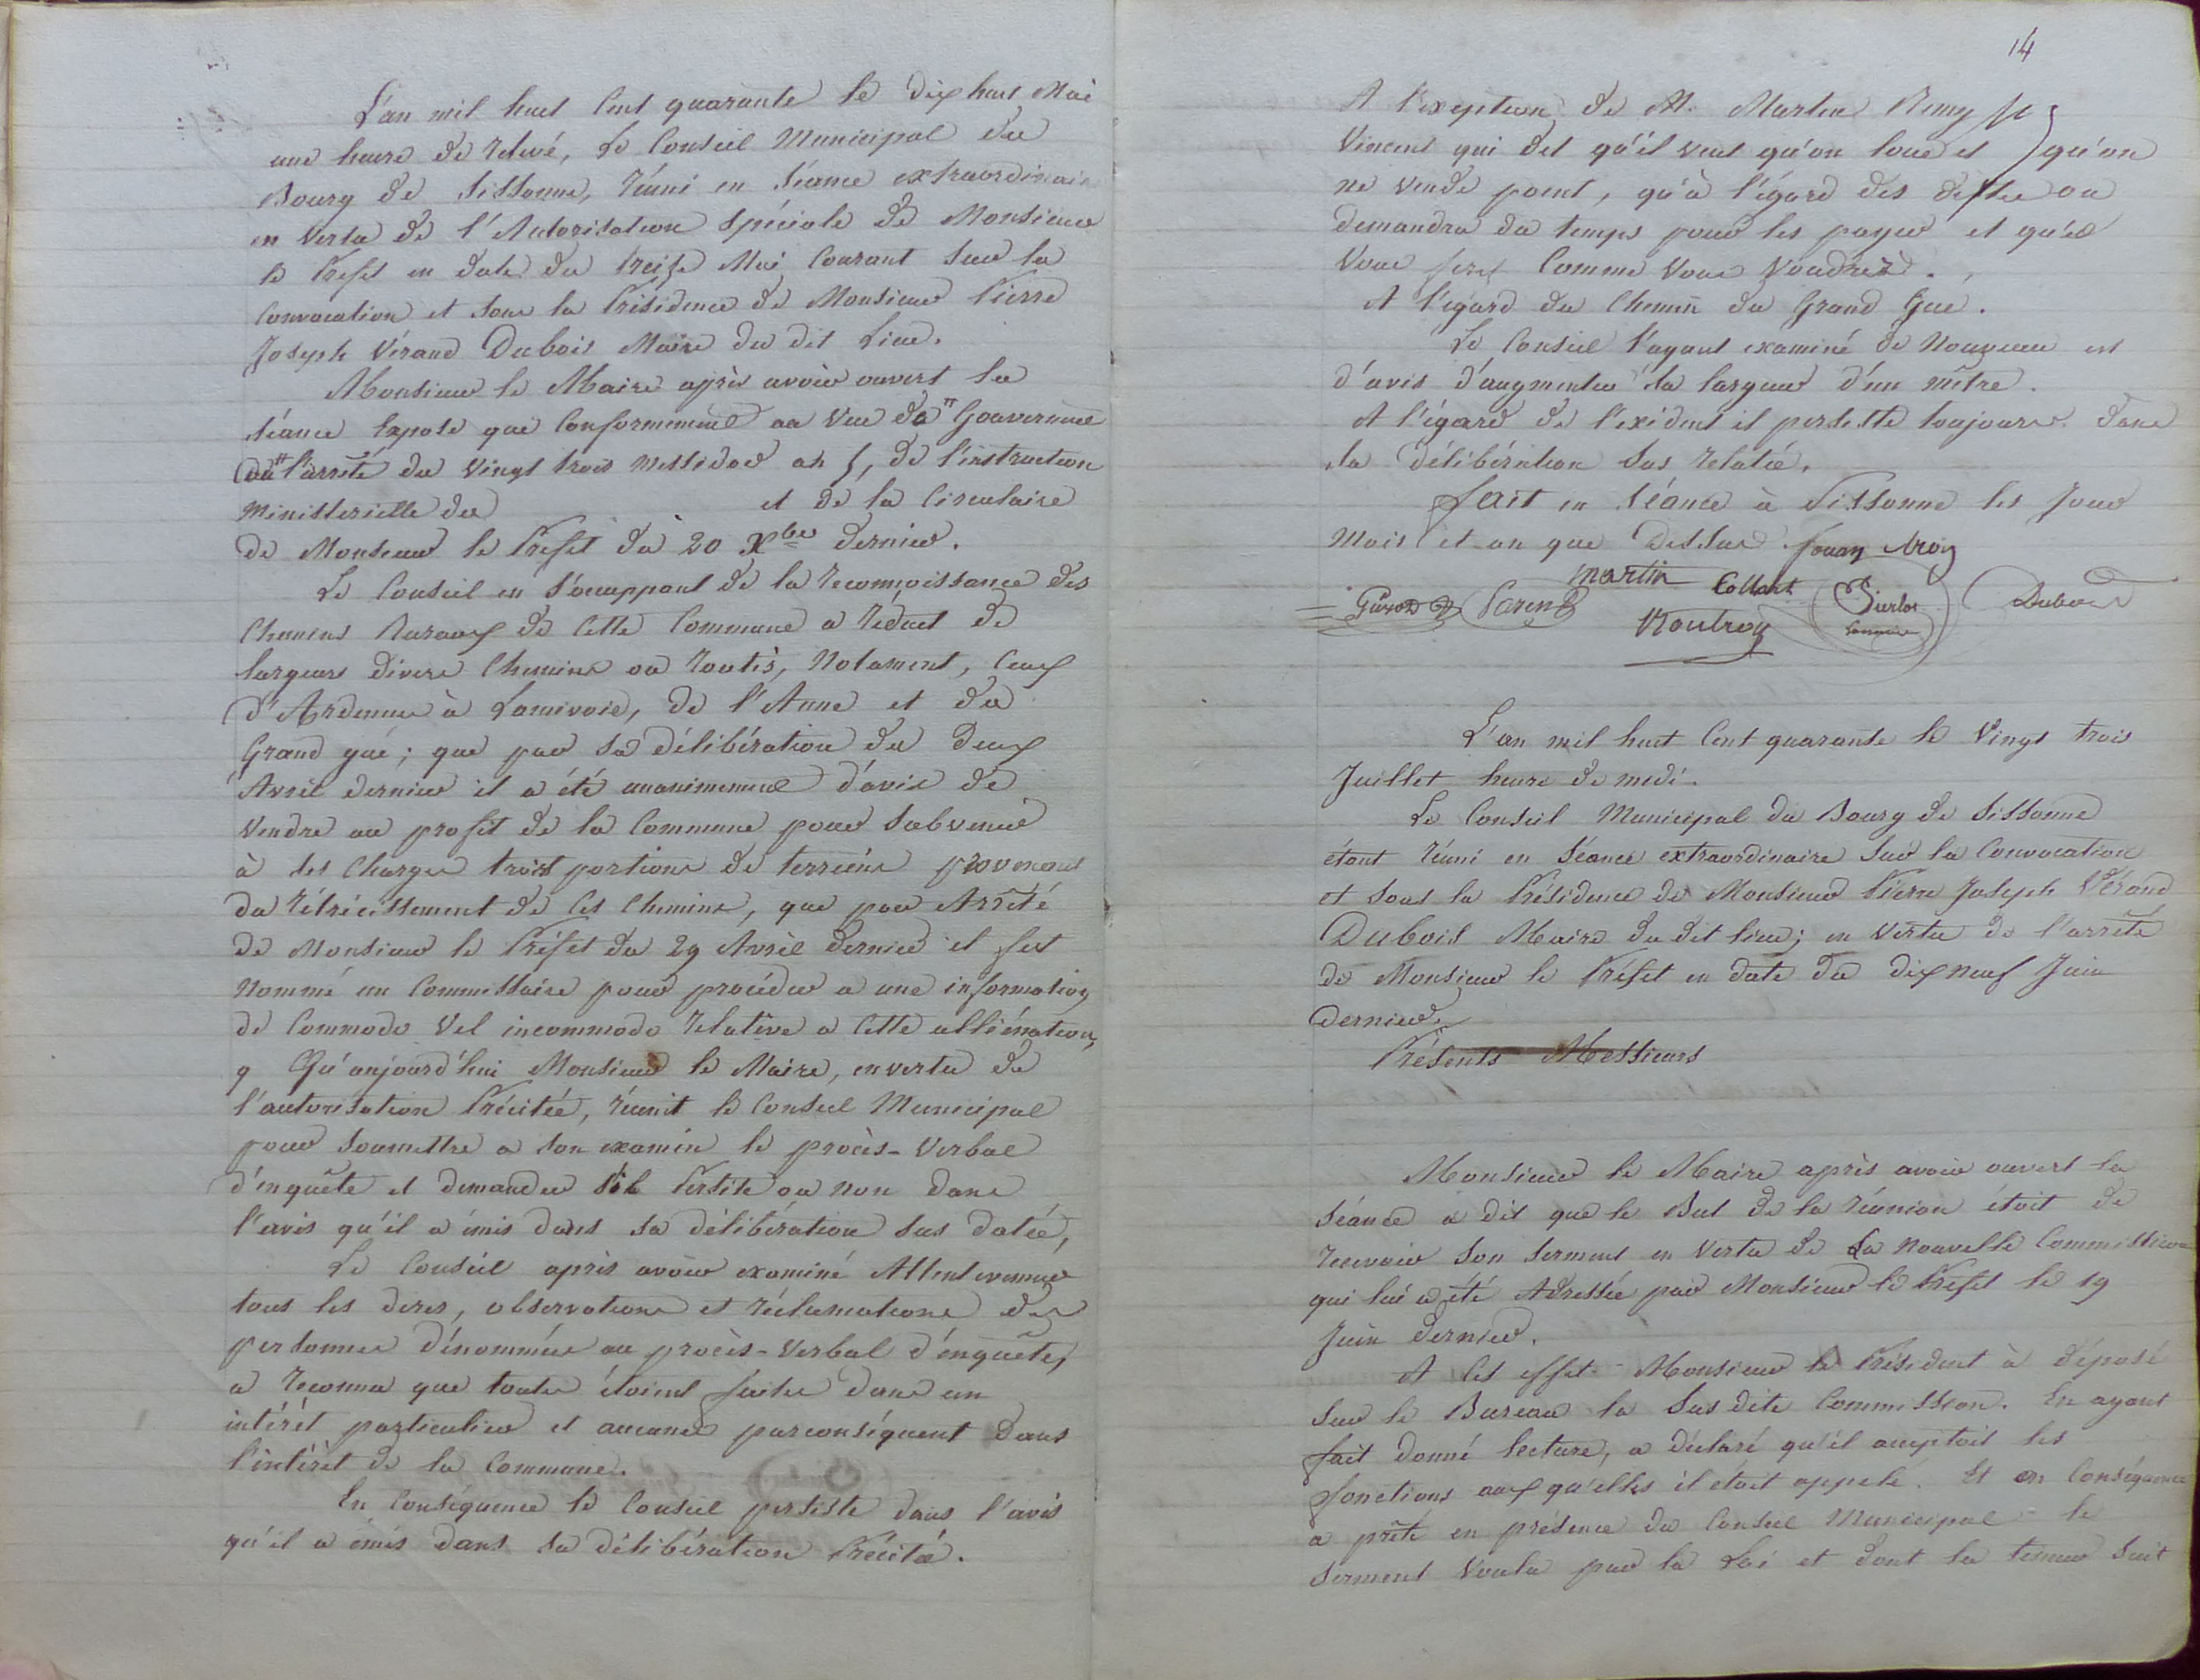 L'an mil huit Cent quarante le dix huit Mai
une heure de relevé, Le Conseil Municipal du
Bourg de Sissonne, réuni en Séance extraordinaire
en vertu de l'Autorisation Spéciale de Monsieur
le Prefet en date du treize Mai Courant Sur la
Convocation et sous la Présidence de Monsieur Pierre
Joseph Vérand Dubois Maire du dit Lieu.
Monsieur le Maire après avoir ouvert la
séance Expose que Conformément au vue du Gouvernement
l'arrêté du Vingt trois Messidor an 5, de l'instruction
Ministerielle du et de la Circulaire
de Monsieur le Prefet du 20 Xbre dernier.
Le Conseil en s'occuppant de la reconnoissance des
Chemins Ruraux de Cette Commune a réduit de
largeurs divers Chemins ou routes, Notament, Ceux
d'Ardennes à Lamivoie, de l'Anne et du
Grand gué; que par sa délibération du deux
Avril dernier il a été unanimement d'avis de
Vendre au profit de la Commune pour Subvenir
à ses Charges trois portions de terreins provenant
du rétrécissement de Ces Chemins, que par Arrêté
de Monsieur le Préfet du 29 Avril dernier il fut
Nommé un Commissaire pour procéder a une information
de Commodo Vel incommodo relative a Cette alliénation,
Qu'aujourd'hui Monsieur le Maire, en vertu de
l'autorisation Précitée, réunit le Conseil Municipal
pour Soumettre a son examin le procès-Verbal
d'enquête et demander s'il Persiste ou non dans
l'avis qu'il a émis dans sa délibération sus datée,
Le Conseil après avoir examiné Attentivement
tous les dires, observations et réclamations des
personnes dénommées au procès-Verbal d'enquête,
a reconnu que toutes étoient faites dans un
intérêt particulier et aucunes parconséquent dans
l'intérêt de la Commune.
En Conséquence le Conseil persiste dans l'avis
qu'il a émis dans sa délibération Précitée.
14
A l'exeption de M. Martin Remy
Vincent qui dit qu'il veut qu'on loue et qu'on
ne vende point, qu'à l'égard des dettes on
demandra du temps pour les payer et qu'il
Vous ferez Comme Vous Voudrez.
A l'égard du Chemin du Grand Gué.
Le Conseil l'ayant examiné de Nouveau est
d'avis d'augmenter la largeur d'un mêtre.
A l'égard de l'exédent il persiste toujours dans
la délibération Sus relatée,
fait en Séance à Sissonne les Jour
Mois et an que Dessus.
Martin Collart
Parent Dubois
Moutroy
L'an mil huit Cent quarante le Vingt trois
Juillet heure de midi.
Le Conseil Municipal du Bourg de Sissonne
étant réuni en Séance extraordinaire Sur la Convocation
et sous la Présidence de Monsieur Pierre Joseph Vérand
Dubois Maire du dit lieu; en Vertu de l'arrêté
de Monsieur le Préfet en date du dix neuf Juin
Dernier.
Présents Messieurs
Monsieur le Maire après avoir ouvert la
Séance a dit que le But de la réunion étoit de
recevoir Son Serment en Vertu de La Nouvelle Commission
qui lui a été Adressée par Monsieur le Préfet le 19
Juin dernier.
A Cet effet Monsieur le Président à déposé
Sur le Bureau la Sus dite Commission. En ayant
fait donné lecture, a déclaré qu'il acceptoit les
fonctions aux qu'elles il étoit appelé. Et en Conséquence
a prêté en présence du Conseil Municipal le
Serment Voulu par la Loi et dont la teneur Suit